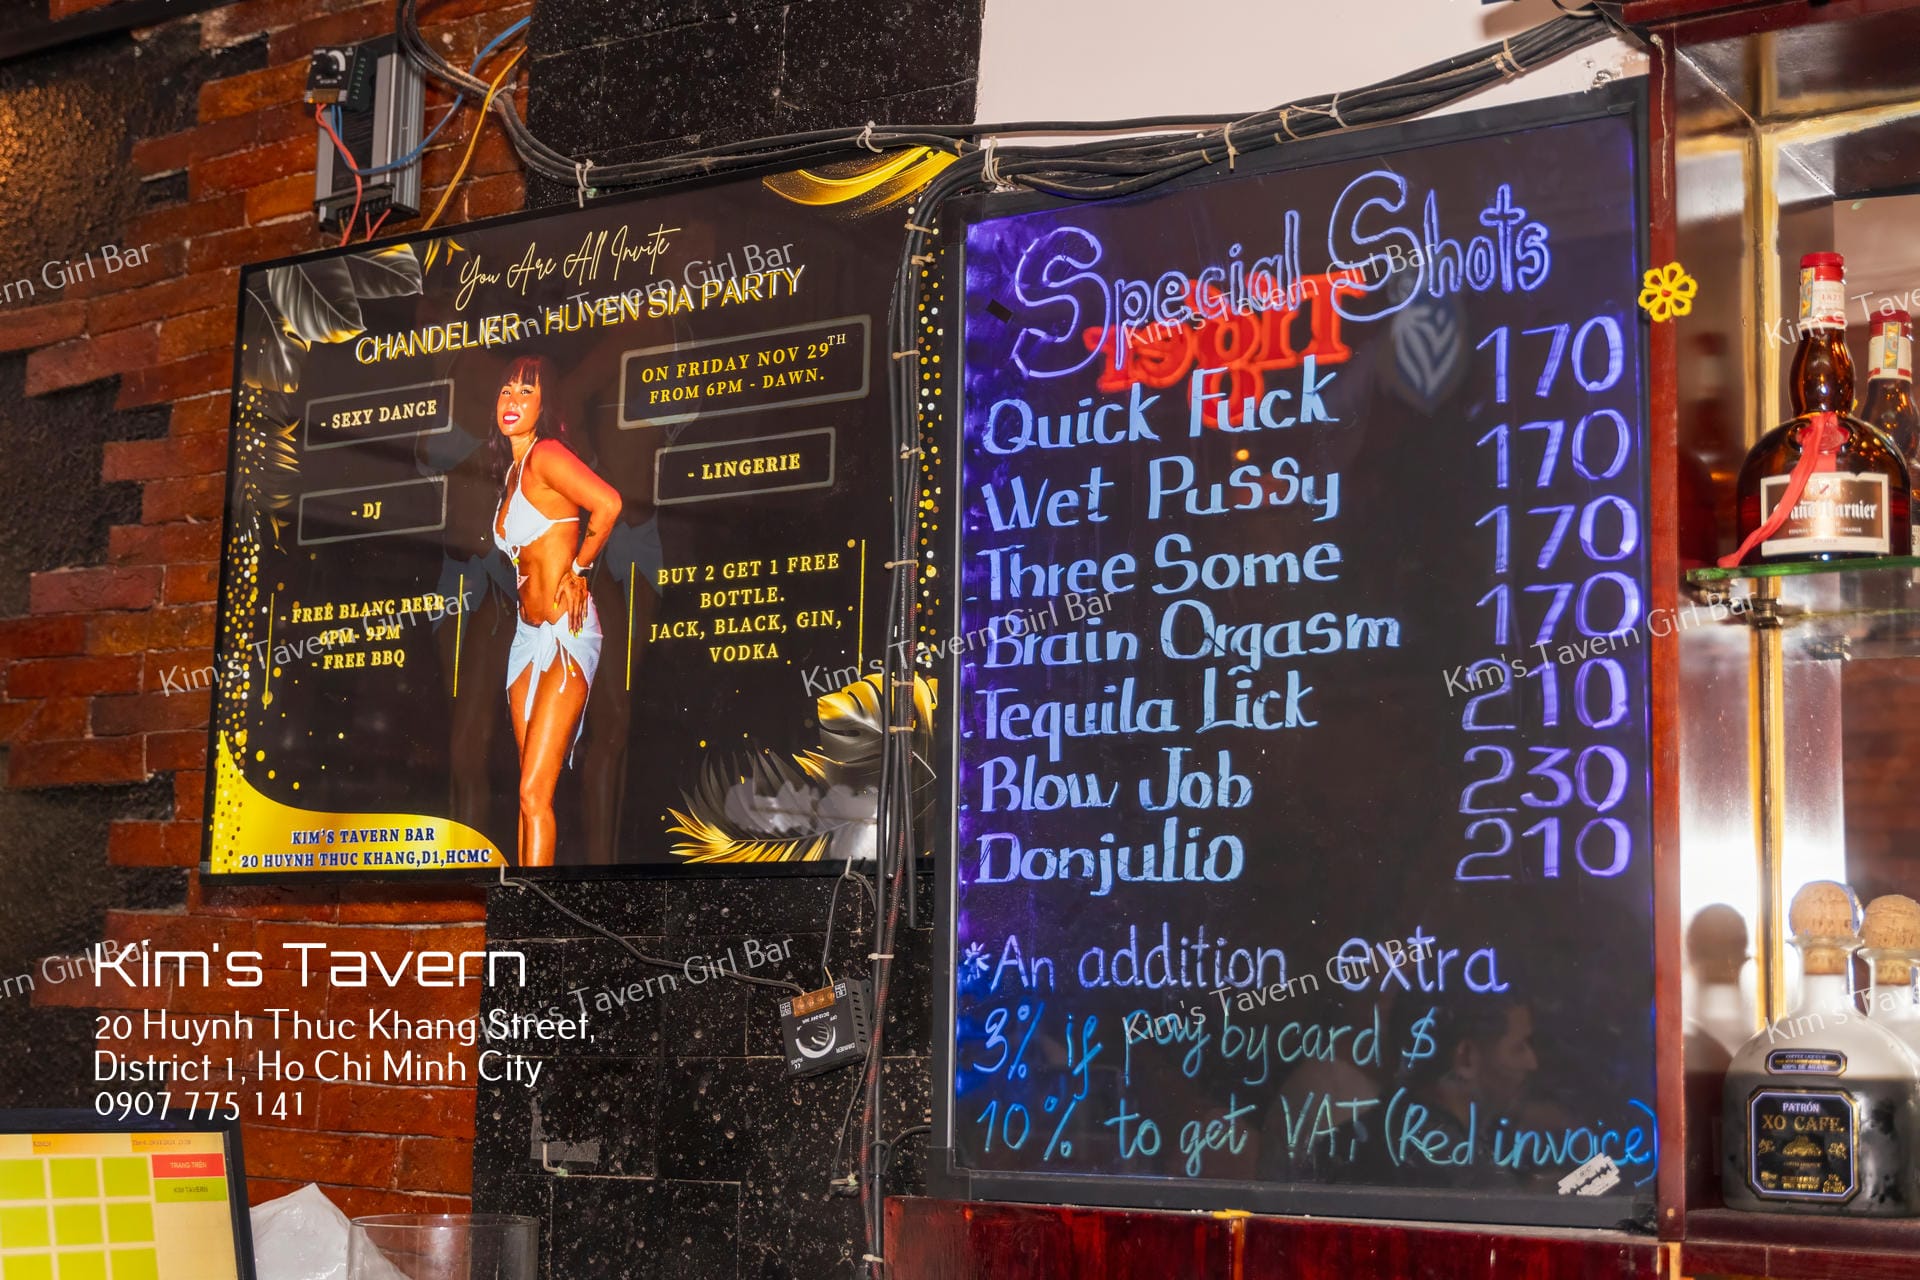 You Are All Invite
CHANDELIER - HUYEN SIA PARTY
ON FRIDAY NOV 29TH
FROM 6PM - DAWN.
- SEXY DANCE
- LINGERIE
- DJ
- FREE BLANC BEER
6PM- 9PM
- FREE BBQ
BUY 2 GET 1 FREE
BOTTLE.
JACK, BLACK, GIN,
VODKA
KIM'S TAVERN BAR
20 HUYNH THUC KHANG,D1,HCMC
Special Shots
Quick Fuck 170
Wet Pussy 170
Three Some 170
Brain Orgasm 170
Tequila Lick 210
Blow Job 230
Donjulio 210
*An addition extra
3% if pay by card $
10% to get VAT (Red invoice)
Kim's Tavern
20 Huynh Thuc Khang Street,
District 1, Ho Chi Minh City
0907 775 141
Kim's Tavern Girl Bar
PATRÓN
XO CAFE.
TRANG TRÊN
KIM TAVERN